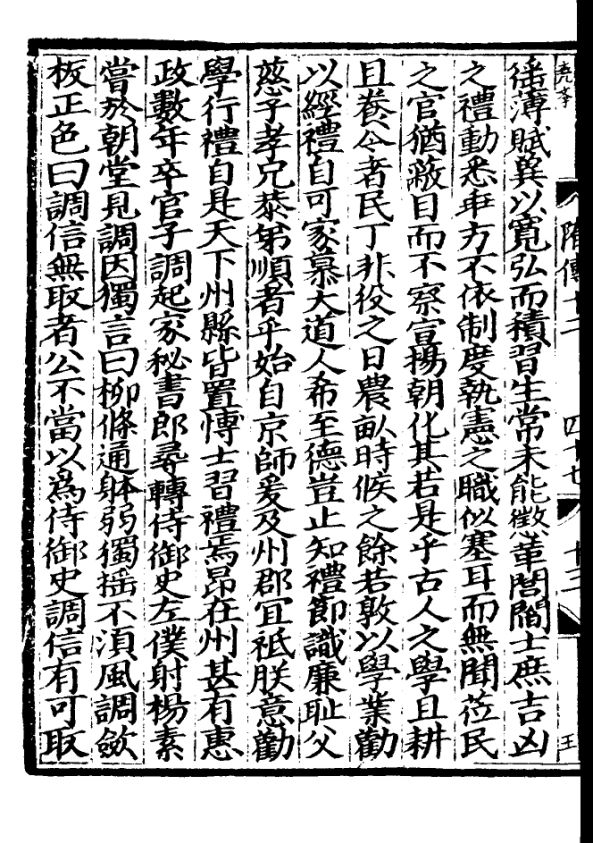 徭薄賦冀以寬弘而積習生常未能懲革閭閻士庶吉凶
之禮動悉乖方不依制度執憲之職似塞耳而無聞莅民
之官猶蔽目而不察宣揚朝化其若是乎古人之學且耕
且養今者民丁非役之日農畝時候之餘若敦以學業勸
以經禮自可家慕大道人希至德豈止知禮節識廉恥父
慈子孝兄恭弟順者乎始自京師爰及州郡宜祗朕意勸
學行禮自是天下州縣皆置慱士習禮焉昂在州甚有惠
政數年卒官子調起家秘書郎尋轉侍御史左僕射楊素
嘗於朝堂見調因獨言曰柳條通躰弱獨揺不湏風調斂
板正色曰調信無取者公不當以為侍御史調信有可取
隋傳十二
四十七
十二
王